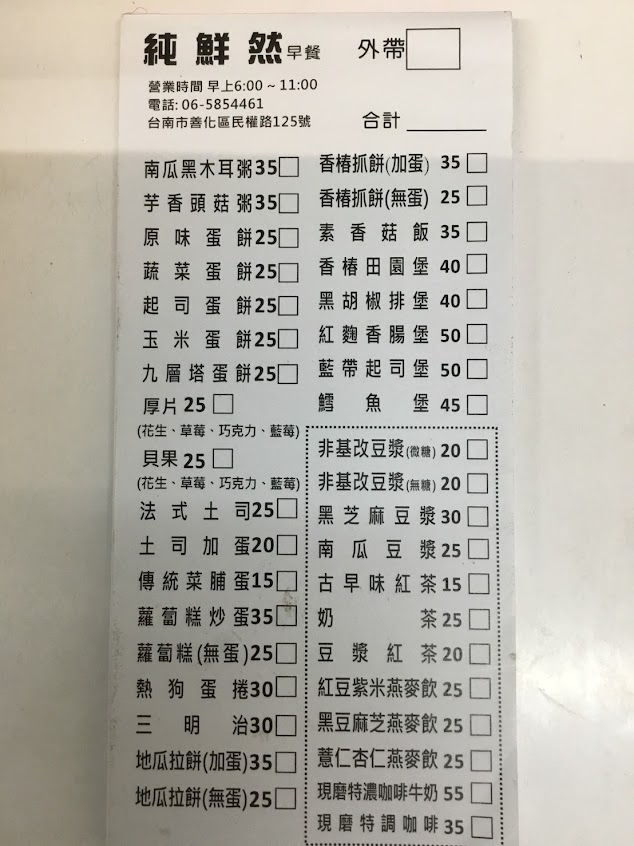 純鮮然早餐 外帶
營業時間 早上6:00 ~ 11:00
電話: 06-5854461
台南市善化區民權路125號
合計
南瓜黑木耳粥35
芋香頭菇粥35
原味蛋餅25
蔬菜蛋餅25
起司蛋餅25
玉米蛋餅25
九層塔蛋餅25
厚片 25
(花生、草莓、巧克力、藍莓)
貝果 25
(花生、草莓、巧克力、藍莓)
法式土司25
土司加蛋20
傳統菜脯蛋15
蘿蔔糕炒蛋35
蘿蔔糕(無蛋)25
熱狗蛋捲30
三明治30
地瓜拉餅(加蛋)35
地瓜拉餅(無蛋)25
香椿抓餅(加蛋) 35
香椿抓餅(無蛋) 25
素香菇飯 35
香椿田園堡 40
黑胡椒排堡 40
紅麴香腸堡 50
藍帶起司堡 50
鱈魚堡 45
非基改豆漿(微糖) 20
非基改豆漿(無糖) 20
黑芝麻豆漿 30
南瓜豆漿 25
古早味紅茶 15
奶茶 25
豆漿紅茶 20
紅豆紫米燕麥飲 25
黑豆麻芝燕麥飲 25
薏仁杏仁燕麥飲 25
現磨特濃咖啡牛奶 55
現磨特調咖啡 35